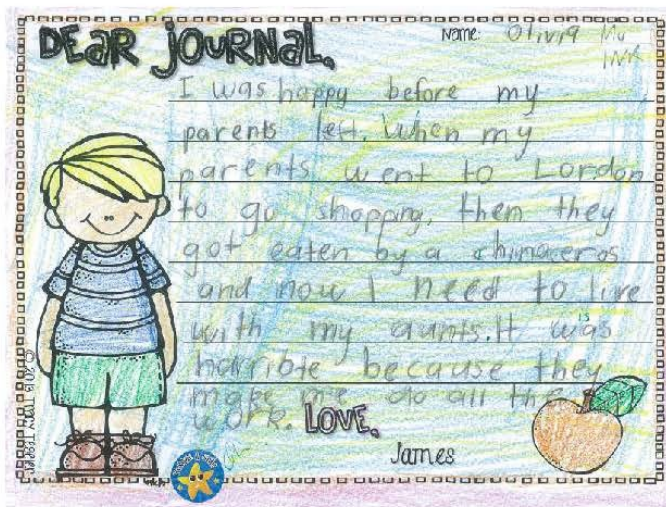 DEAR JOURNAL,
Name: Olivia
I was happy before my
parents left. When my
parents went to Lordon
to go shopping, then they
got eaten by a rhinaceros
and now I need to live
with my aunts. It was
is
horrible because they
make me do all the
work. LOVE,
James